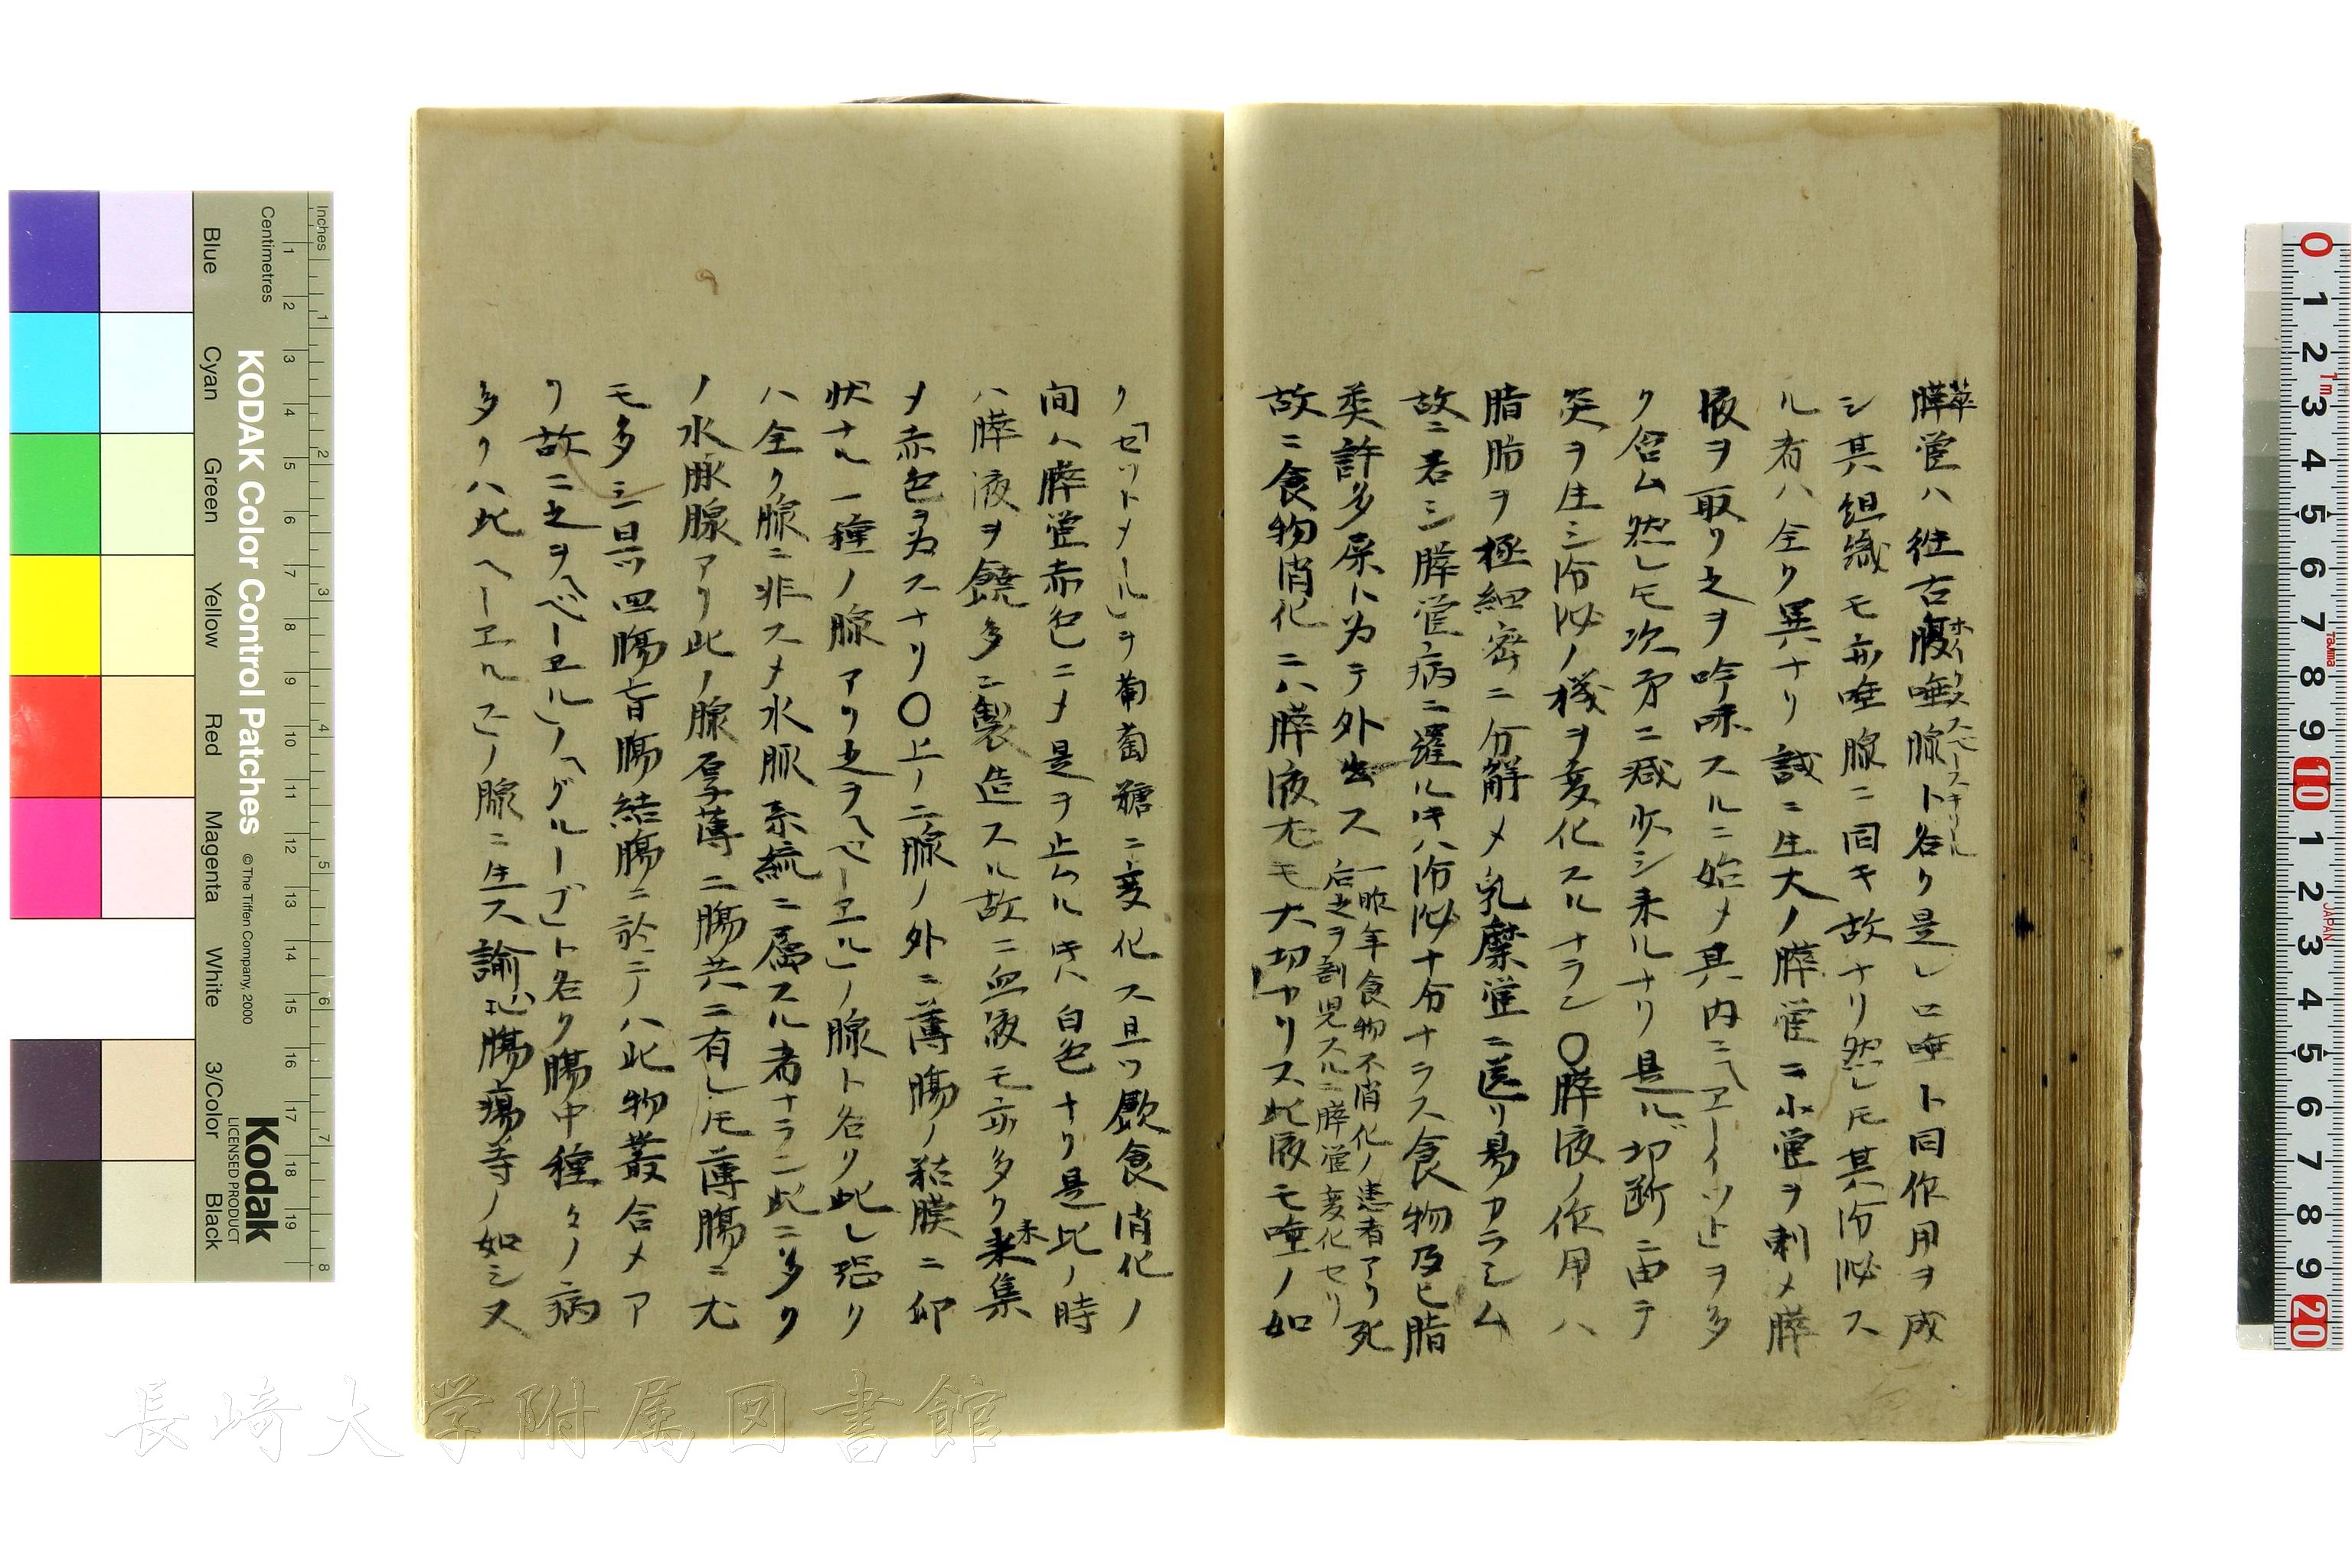 膵管ハ往古腹唾腺ト名ク是レ口唾ト同作用ヲ成
萃
ホイクスペースキリール
シ其組織モ亦唾腺ニ同キ故ナリ然レ𪜈其沕泌ス
ル者ハ全ク異ナリ試ニ生犬ノ膵管ニ小管ヲ刺メ膵
液ヲ取リ之ヲ吟味スルニ始メ其内ニ「エーイツト」ヲ多
ク含ム然レ𪜈次第ニ减少シ来ルナリ是レ切断ニ由テ
炎ヲ生シ沕泌ノ機ヲ変化スルナラン〇膵液ノ作用ハ
脂肪ヲ極細密ニ分解メ乳糜管ニ送リ易カラシム
故ニ若シ膵管病ニ罹ルキハ沕泌十分ナラス食物及ヒ脂
類許多尿ニ為テ外出ス
一昨年食物不消化ノ患者アリ死
后之ヲ割見スルニ膵管変化セリ
故ニ食物消化ニハ膵液尤モ大切ナリス此液モ唾ノ如
ク「セツトメール」ヲ葡萄糖ニ変化ス且ツ飲食消化ノ
間ハ膵管赤色ニメ是ヲ止ムルキハ白色ナリ是比ノ時
ハ膵液ヲ饒多ニ製造スル故ニ血液モ亦多ク来集
メ赤色ヲ為スナリ〇上ノ二腺ノ外ニ薄腸ノ粘膜ニ卵
状ナル一種ノ腺アリ之ヲ「ペーエル」ノ腺ト名ク此レ恐ク
ハ全ク腺ニ非スメ水脈系統ニ属スル者ナラン此ニ多ク
ノ水脉腺アリ此ノ腺厚薄二腸共ニ有レ𪜈薄腸ニ尤
モ多シ且ツ四腸盲腸結腸ニ於テノハ此物叢合メア
リ故ニ之ヲ「ペーエル」ノ「グループ」ト名ク腸中種々ノ病
多クハ此ペーエル氏ノ腺ニ生ス諭ハ腸瘍等ノ如シ又
長崎大学附属図書館
KODAK Color Control Patches
© The Tiffen Company, 2000
Kodak
LICENSED PRODUCT
Inches
Centimetres
Blue
Cyan
Green
Yellow
Red
Magenta
White
3/Color
Black